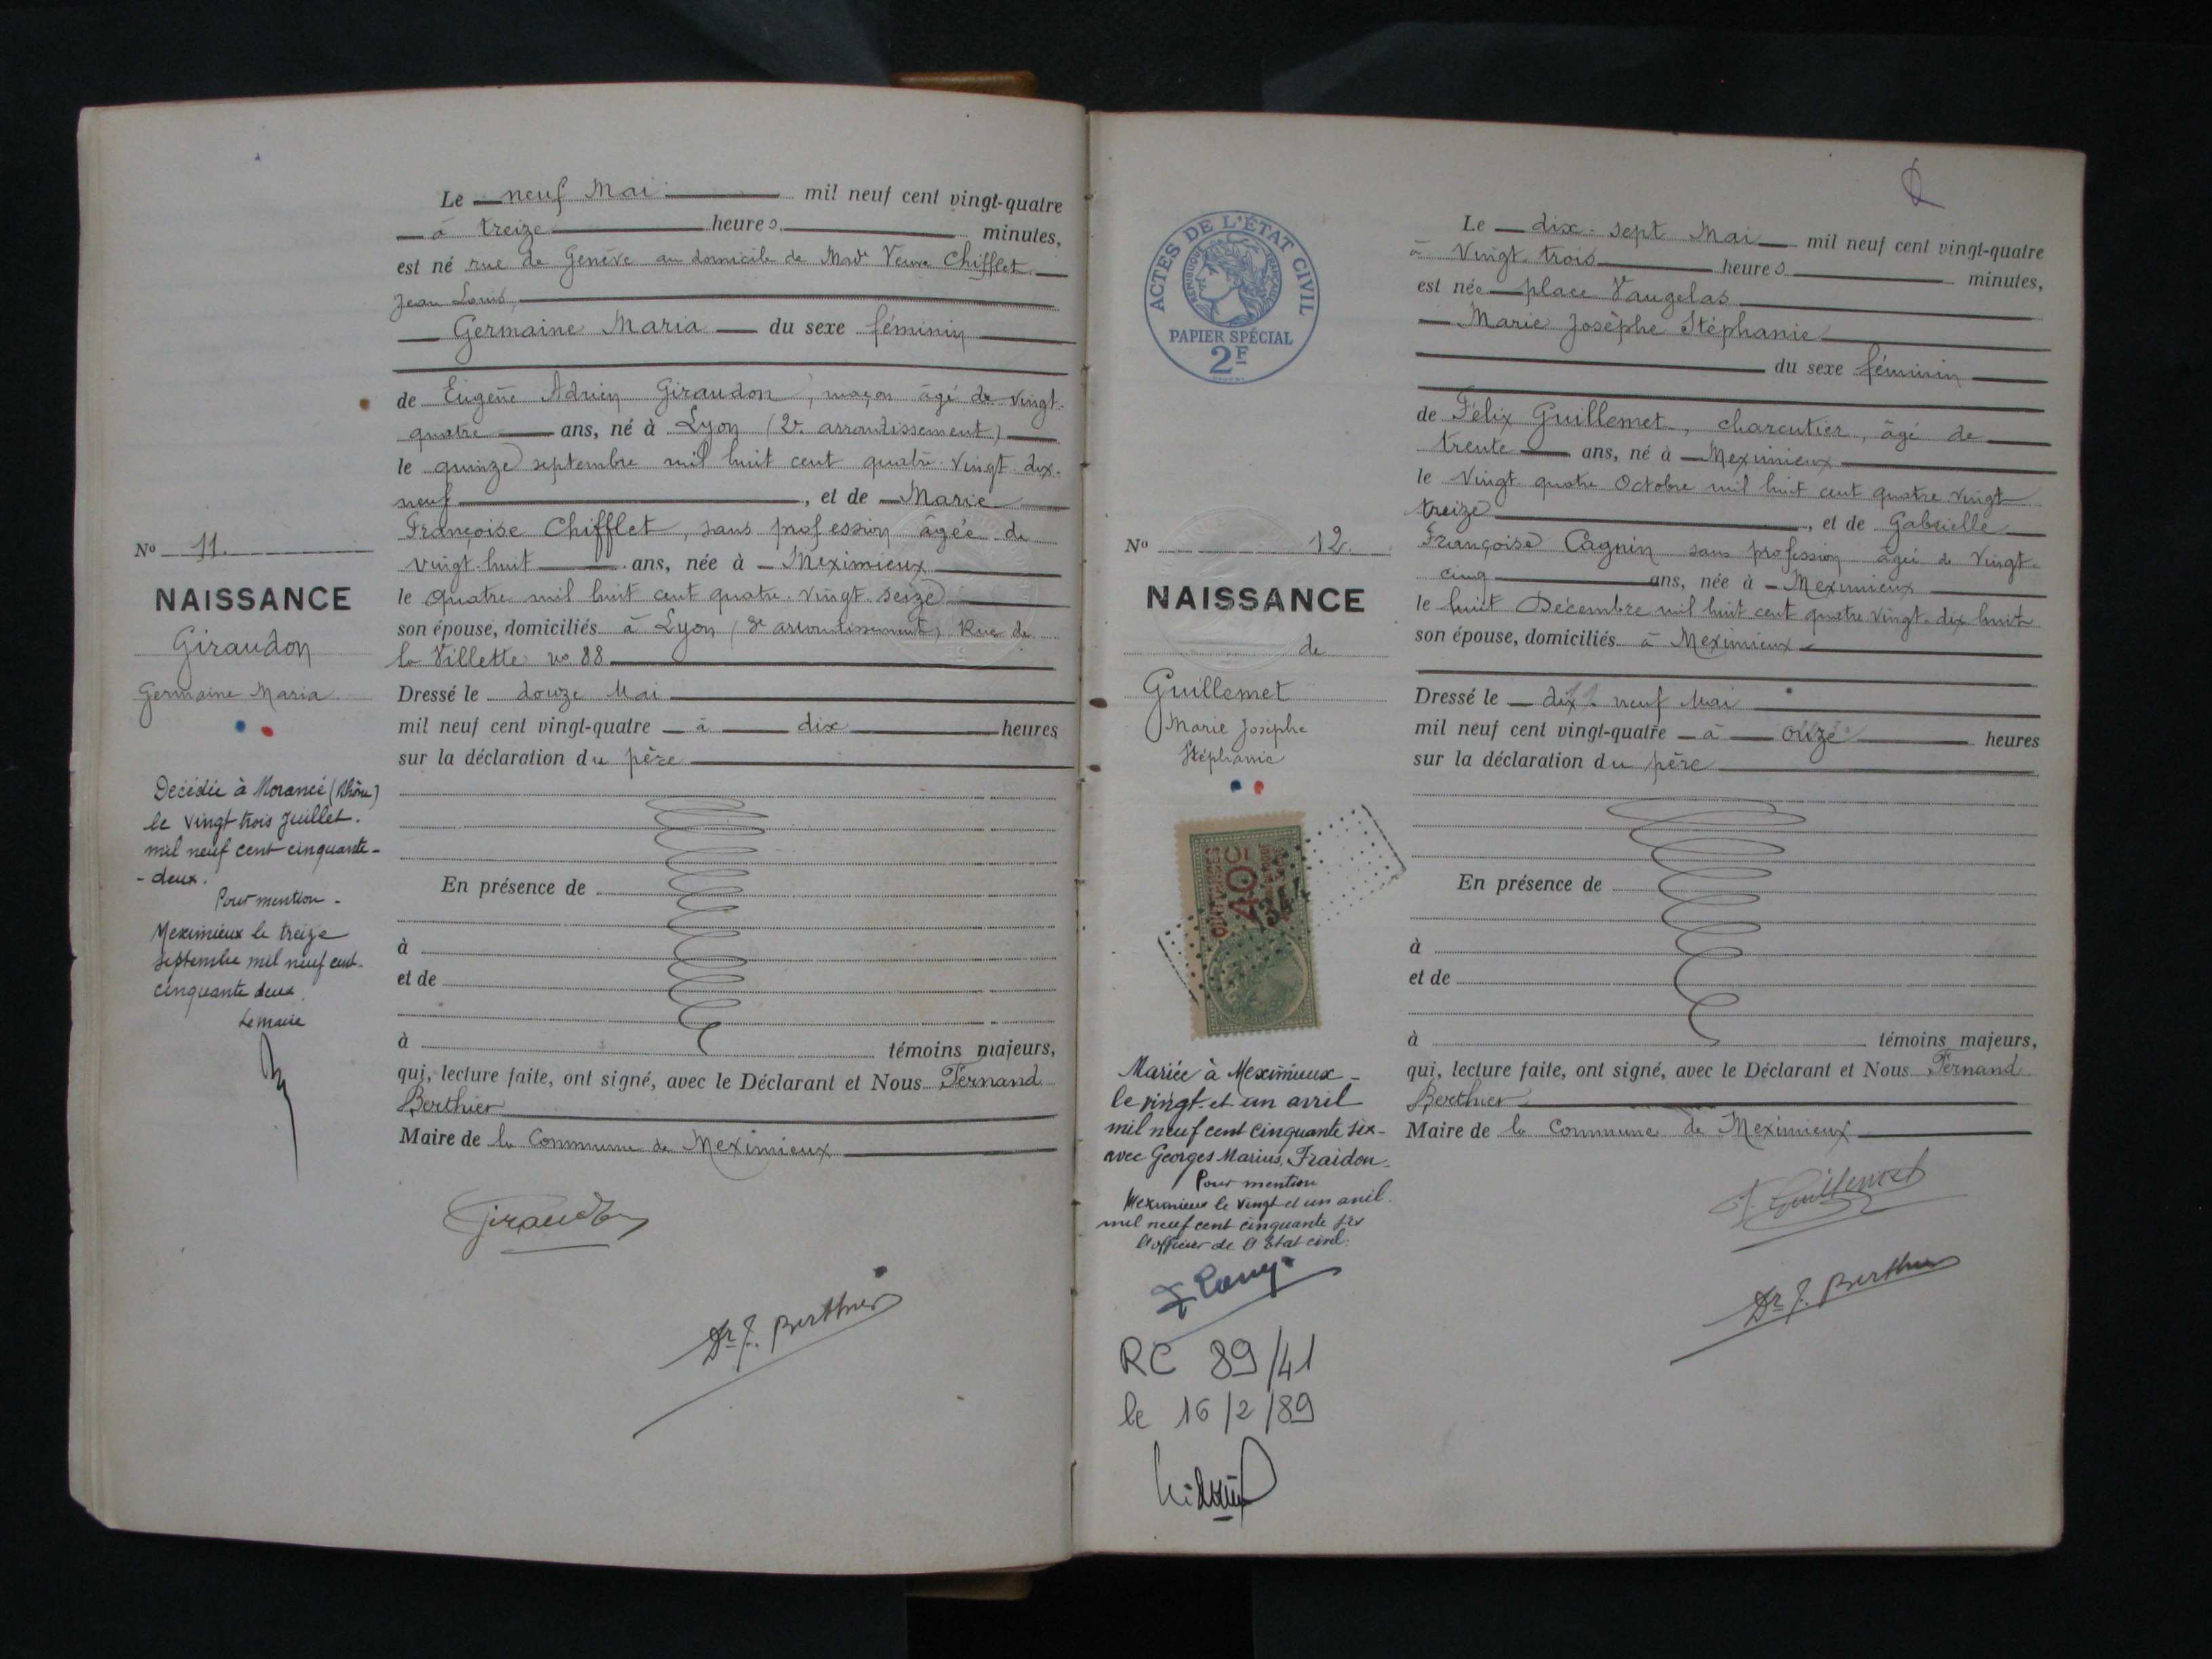 Le neuf Mai mil neuf cent vingt-quatre
à treize heures minutes,
est né rue de Genève au domicile de Made Veuve Chifflet
Jean Louis,
Germaine Maria du sexe féminin
de Eugène Adrien Giraudon, maçon âgé de vingt-
quatre ans, né à Lyon (2e arrondissement)
le quinze septembre mil huit cent quatre-vingt dix-
neuf, et de Marie
Françoise Chifflet, sans profession âgée de
vingt-huit ans, née à Meximieux
le quatre mil huit cent quatre-vingt seize
son épouse, domiciliés à Lyon (3e arrondissement) Rue de
la Villette no 88
Dressé le douze Mai
mil neuf cent vingt-quatre à dix heures
sur la déclaration du père
En présence de
à
et de
à témoins majeurs,
qui, lecture faite, ont signé, avec le Déclarant et Nous Fernand
Berthier
Maire de la Commune de Meximieux
Giraudon
Dr F. Berthier
No 11.
NAISSANCE
Giraudon
Germaine Maria
Décédée à Morancé (Rhône)
le vingt trois Juillet.
mil neuf cent cinquante-
-deux.
Pour mention-
Meximieux le treize
septembre mil neuf cent-
cinquante deux.
Le maire
ACTES DE L'ÉTAT CIVIL
RÉPUBLIQUE FRANÇAISE
PAPIER SPÉCIAL
2F
No 12.
NAISSANCE
de
Guillemet
Marie Josèphe
Stéphanie
40c
Mariée à Meximieux-
le vingt et un avril
mil neuf cent cinquante six-
avec Georges Marius, Fraidon-
Pour mention
Meximieux le vingt et un avril.
mil neuf cent cinquante six
l'officier de l'Etat civil.
RC 89/41
le 16/2/89
Le dix-sept Mai mil neuf cent vingt-quatre
à Vingt trois heures minutes,
est née place Vaugelas
Marie Josèphe Stéphanie
du sexe féminin
de Félix Guillemet, charcutier, âgé de
trente ans, né à Meximieux
le Vingt quatre Octobre mil huit cent quatre vingt
treize, et de Gabrielle
Françoise Cagnin sans profession âgée de Vingt-
cinq ans, née à Meximieux
le huit Décembre mil huit cent quatre vingt-dix huit
son épouse, domiciliés à Meximieux
Dressé le dix-neuf Mai
mil neuf cent vingt-quatre à onze heures
sur la déclaration du père
En présence de
à
et de
à témoins majeurs,
qui, lecture faite, ont signé, avec le Déclarant et Nous Fernand
Berthier
Maire de la Commune de Meximieux
F. Guillemet
Dr F. Berthier